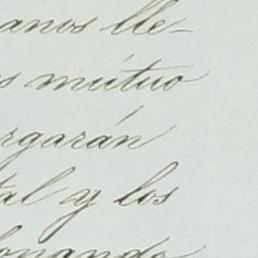 anos lle-
s mútuo
rgarán
tal y los
onando